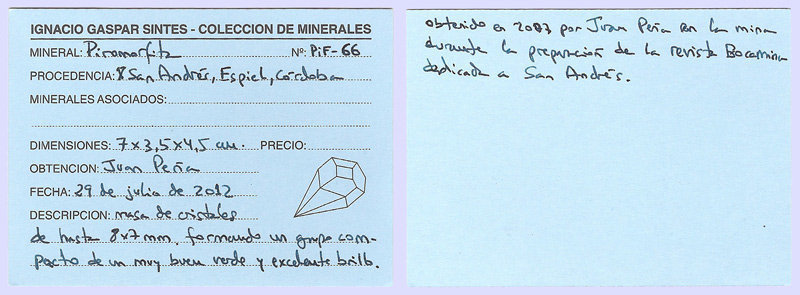 IGNACIO GASPAR SINTES - COLECCION DE MINERALES
MINERAL: Piromorfita Nº: PiF-66
PROCEDENCIA: San Andrés, Espiel, Córdoba
MINERALES ASOCIADOS:
DIMENSIONES: 7x3,5x4,5 cm. PRECIO:
OBTENCION: Juan Peña
FECHA: 29 de julio de 2012
DESCRIPCION: masa de cristales
de hasta 8x7 mm, formando un grupo com-
pacto de un muy buen verde y excelente brillo.
obtenido en 2003 por Juan Peña en la mina
durante la preparación de la revista Bocamina
dedicada a San Andrés.